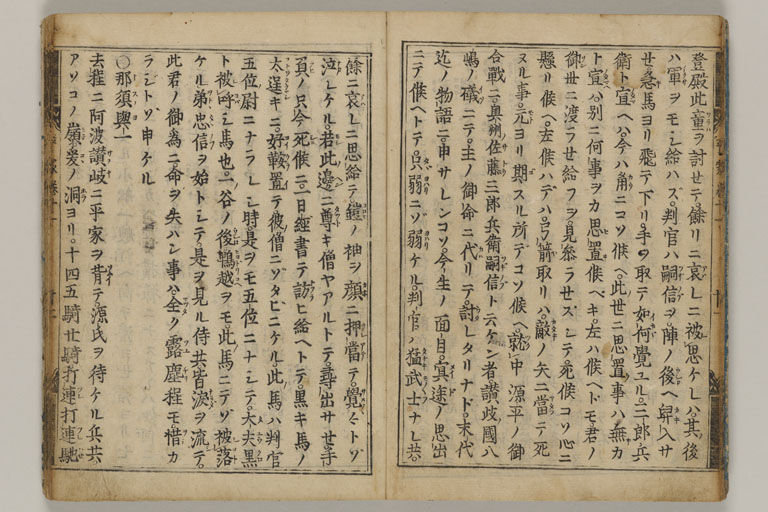 登殿此童ヲ討セテ餘リニ哀シニ被思ケレハ其後
ハ軍ヲモシ給ハズ。判官ハ嗣信ヲ陣ノ後ヘ舁入サ
セ。急馬ヨリ飛テ下リ。手ヲ取テ如何覺ユル。三郎兵
衛ト宣ヘハ。今ハ角ニコソ候ヘ。此世ニ思置事ハ無カ
ト宣ハ。別ニ何事ヲカ思置候ベキ。左ハ候ヘドモ君ノ
御世ニ渡ラせ給フヲ見參ラセズシテ。死候コソ心ニ
懸リ候ヘ。左候ハデハ。弓箭取リハ。敵ノ矢ニ當テ死
スル事。元ヨリ期スル所デコソ候ヘ。就中源平ノ御
合戰ニ。奧州佐藤三郎兵衛嗣信ト云ケン者。讃岐國八
嶋ノ礒ニテ。主ノ御命ニ代リテ。討レタリナド。末代
迄ノ物語ニ。申サレンコソ。今生ノ面目。冥途ノ思出
ニテ候ヘトテ。只弱ニゾ弱ケル。判官ノ猛武士ナレ共。
餘ニ哀シニ思給テ。鎧ノ袖ヲ顔ニ押當テ。覺〻トゾ
泣レケル。若此邊ニ尊キ僧ヤアルトテ。尋出サせ。手
負ノ只今死候ニ。一日經書テ訪ヒ給ヘトテ。黒キ馬ノ
太逞キニ。好鞍置テ。彼僧ニゾタビニケル。此馬ハ判官
五位尉ニナラレシ時。是ヲモ五位ニナシテ。大夫黒
ト被呼シ馬也。一谷ノ後。鵯越ヲモ。此馬ニテゾ被落
ケル。弟忠信ヲ始トシテ。是ヲ見ル侍共。皆涙ヲ流テ。
此君ノ御為ニ命ヲ失ハン事ハ。全ク露塵程モ惜カ
ラジトゾ申ケル
〇那須與一
去程ニ阿波讃岐ニ平家ヲ背テ。源氏ヲ待ケル兵共
アソコノ嶺。爰ノ洞ヨリ。十四五騎廿騎。打連打連馳